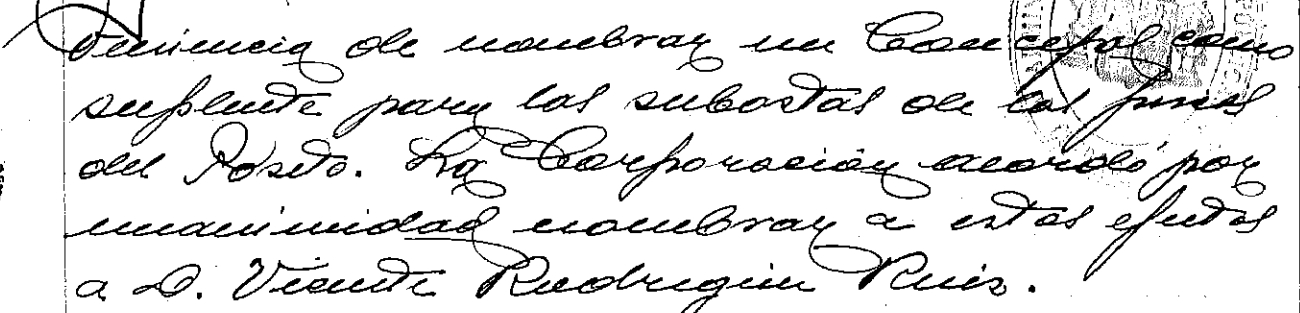 veniencia de nombrar un Concejal como
suplente para las subastas de las fincas
del Pósito. La Corporación acordó por
unanimidad nombrar a estos efectos
a D. Vicente Rodríguez Ruiz.